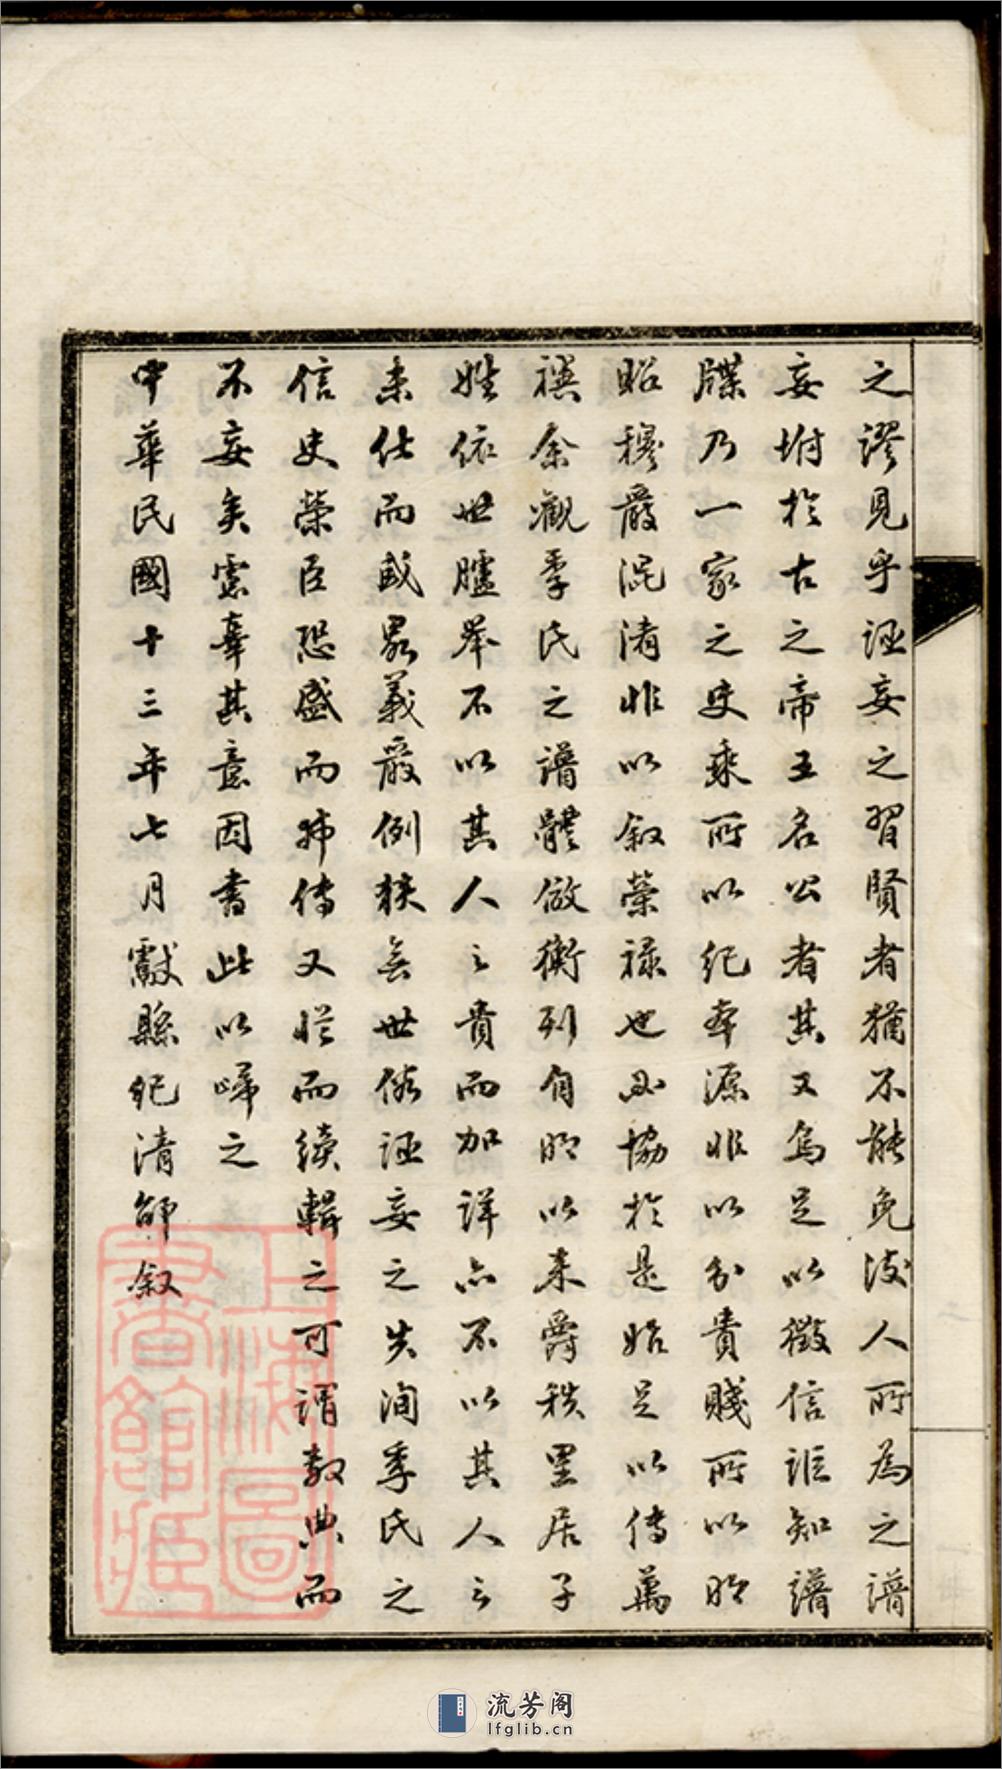 之謬見乎誣妄之習賢者猶不能免後人所為之譜
妄坿於古之帝王名公者其又烏足以徵信詎知譜
牒乃一家之史乘所以紀本源非以分貴賤所以昭
昭穆嚴混淆非以敘榮祿也必協於是始足以傳萬
禩余觀季氏之譜體倣衡列自明以來爵秩里居子
姓依世臚舉不以其人之貴而加詳亦不以其人之
未仕而或畧義嚴例狹無世俗誣妄之失洵季氏之
信史榮臣恐盛而弗傳又從而續輯之可謂敦典而
不妄矣憲章其意因書此以歸之
中華民國十三年七月獻縣紀清師敘
上海圖書館藏
流芳阁
lfglib.cn